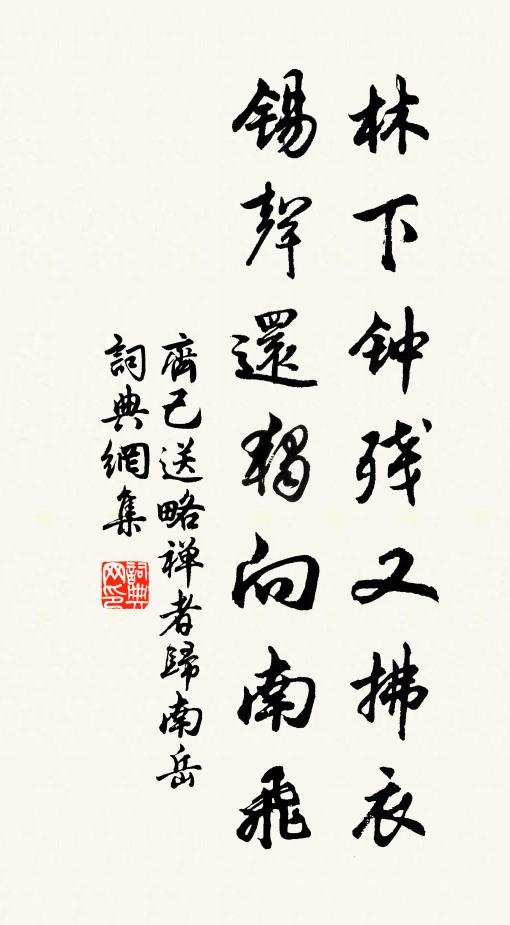 林下钟残又拂衣
锡聲還獨向南飛
齊己送略禅者歸南岳
詞典網集
詞典网印